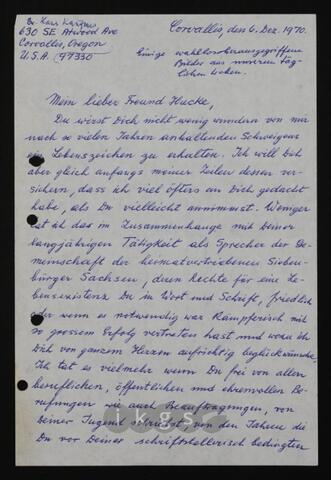 Dr. Karl Kartmann
630 SE Atwood Ave
Corvallis, Oregon
U.S.A. 97330
Corvallis, den 6. Dez. 1970.
Einige wahllos herausgegriffene
Bilder aus unserem täg-
lichen Leben.
Mein lieber Freund Hucke,
Du wirst Dich nicht wenig wundern von mir
nach so vielen Jahren anhaltenden Schweigens
ein Lebenszeichen zu erhalten. Ich will Dich
aber gleich anfangs meiner Zeilen dessen ver-
sichern, dass ich viel öfters an Dich gedacht
habe, als Du vielleicht annimmst. Weniger
tat ich das im Zusammenhange mit Deiner
langjährigen Tätigkeit als Sprecher der Ge-
meinschaft der heimatvertriebenen Sieben-
bürger Sachsen, deren Rechte für eine Le-
bensexistenz Du in Wort und Schrift, friedlich
oder wenn es notwendig war kämpferisch mit
so grossem Erfolg vertreten hast und wozu ich
Dich von ganzem Herzen aufrichtig beglückwünsche.
Ich tat es vielmehr wenn Du frei von allen
beruflichen, öffentlichen und ehrenvollen Be-
rufungen wie auch Beauftragungen, von
Deiner Jugend schreibst, von den Jahren die
Du vor Deiner schriftstellerisch bedingten
ikgs